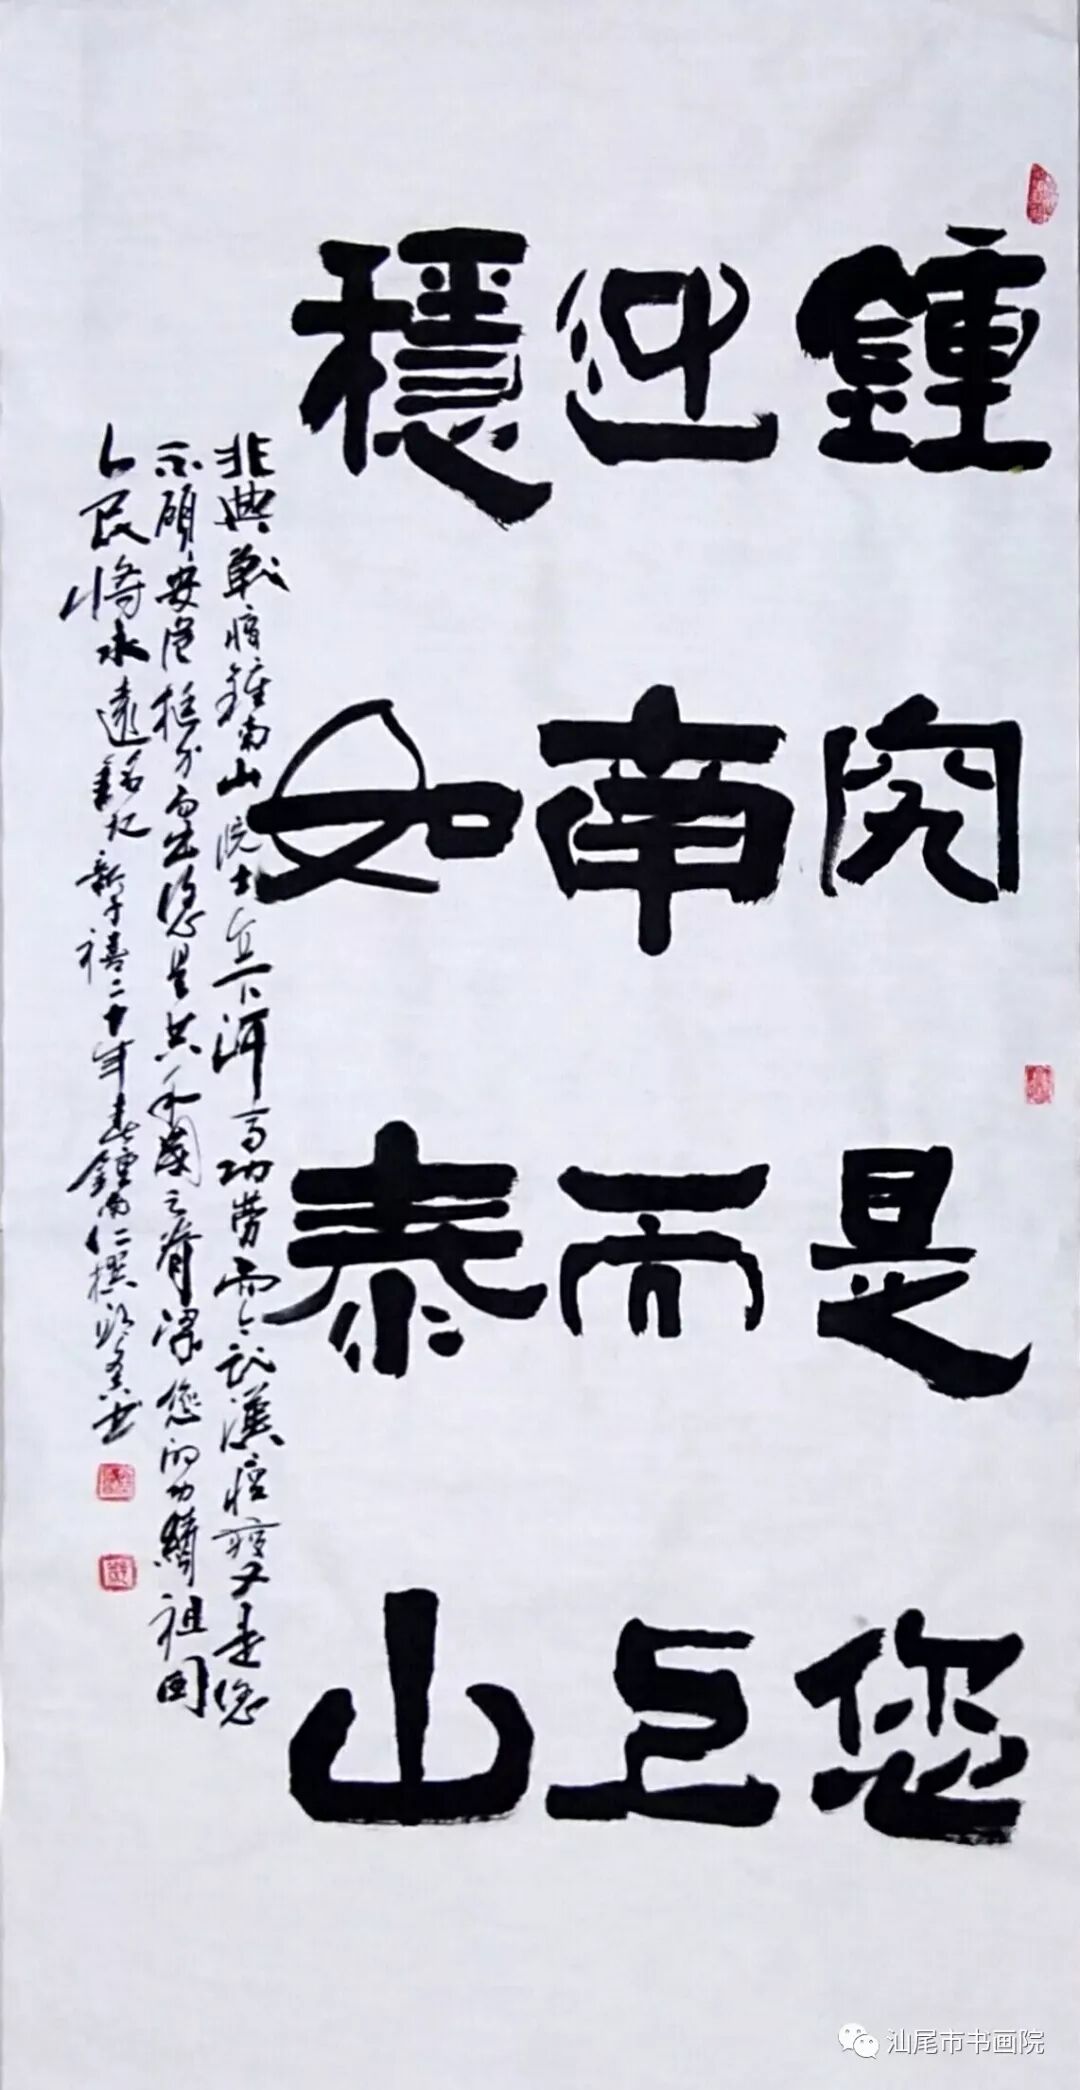 鍾究是您
迎南而上
穩如泰山
非典戰鍾南山院士立下汗馬功勞而今武漢瘟疫又是您
不顧安危挺身而出您是共和國之脊梁您的功績祖國
人民將永遠銘記 新子禧二十年春鍾南仁撰書
汕尾市书画院